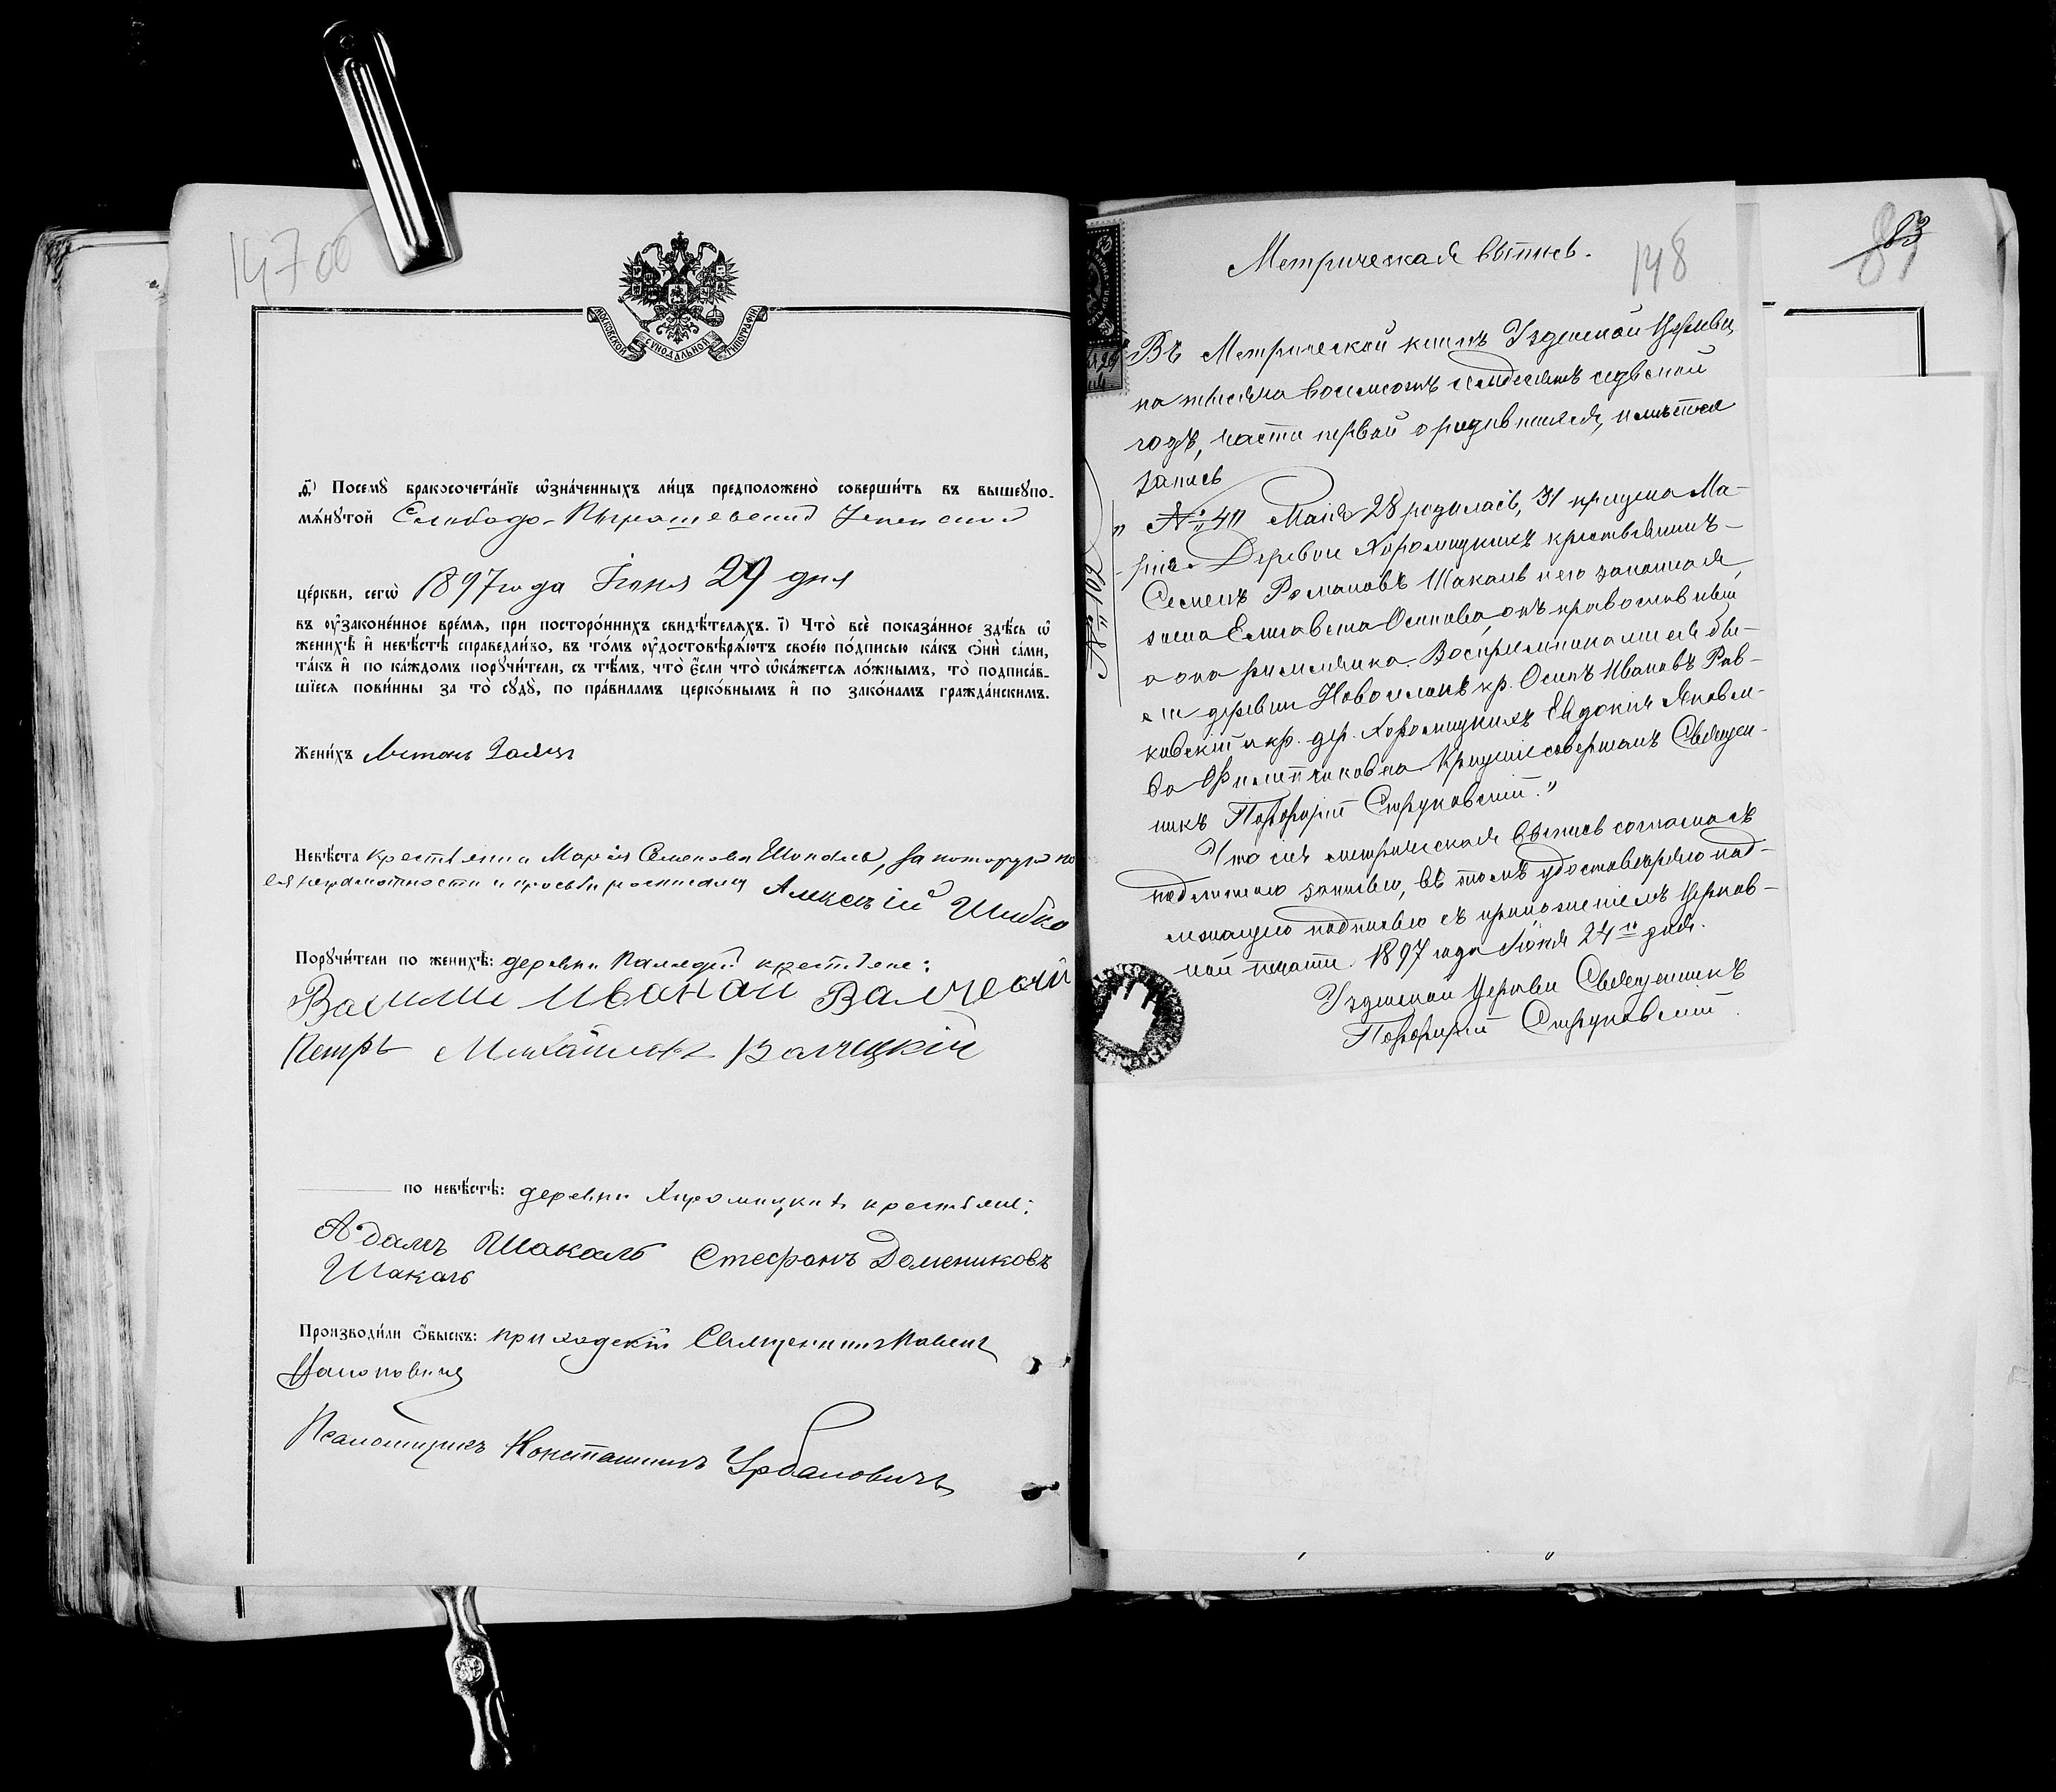 147 об
МОСКОВСКОЙ СѴНОДАЛЬНОЙ ТИПОГРАФІИ
Ѳ҃) Посемꙋ̀ бракосочета́нїе ѡ҆зна́ченныхъ ли́цъ предположено̀ соверши́ть въ вышеꙋпо-
мѧ́нꙋтой Слободо-Пырашевской Успенской
це́ркви, сегѡ̀ 1897 года Іюня 29 дня
въ ᲂу҆зако́ненное вре́мѧ, при посторо́ннихъ свидѣ́телѧхъ. І҃) Что̀ всѐ пока́занное здѣ́сь ѡ҆
женихѣ̀ и҆ невѣ́стѣ справедли́во, въ то́мъ ᲂу҆достовѣрѧ́ютъ свое́ю по́дписью ка́къ ѻ҆нѝ са́ми,
та́къ и҆ по ка́ждомъ порꙋчи́тели, съ тѣ́мъ, что̀ є҆́сли что̀ ѡ҆ка́жетсѧ ло́жнымъ, то̀ подписа́в-
шїесѧ пови́нны за то̀ сꙋдꙋ̀, по пра́виламъ церко́внымъ и҆ по зако́намъ гражда́нскимъ.
Жени́хъ Антонъ Заяцъ
Невѣ́ста крестьянка Марія Семенова Шакаль, за которую по
ея неграмотности и просьбѣ росписался Алексѣй Шибко
Порꙋчи́тели по женихѣ̀: деревни крестьяне:
Василий Иванаи Валчецкий
Петръ Михайловъ Валчецкій
по невѣ́стѣ: деревни Хоромицкихъ крестьяне:
Адамъ Шакаль Стефанъ Домениковъ
Шакаль
Производи́ли ѻ҆́быскъ: приходскій Священникъ Павелъ
Псаломщикъ Константинъ Урбановичъ
83
148
Метрическая выпись.
Въ Метрической книгѣ Узденской Церкви,
на тысяча восемсотъ семдесятъ седьмой
годъ, части первой о родившихся, имѣется
запись
„№ 40 Маія 28 родилась, 31 крещена Ма-
рія. Деревни Хоромицкихъ крестьянинъ-
Семенъ Романовъ Шакаль и его законная
жена Елисавета Осипова, онъ православный
а она римлянка. Воспріемниками были
деревни Новоселокъ кр. Осипъ Ивановъ Рав-
ковскій и кр. дер. Хоромицкихъ Евдокія Яковле-
ва Филипчиковна. Крещеніе совершалъ Священ-
никъ Порфирій Струковскій.“
Что сія метрическая выпись согласна съ
подлинною записью, въ томъ удостовѣряю над-
лежащею подписью съ приложеніемъ Церков-
ной печати. 1897 года Іюня 24го дня.
Узденской Церкви Священникъ
Порфирій Струковскій.